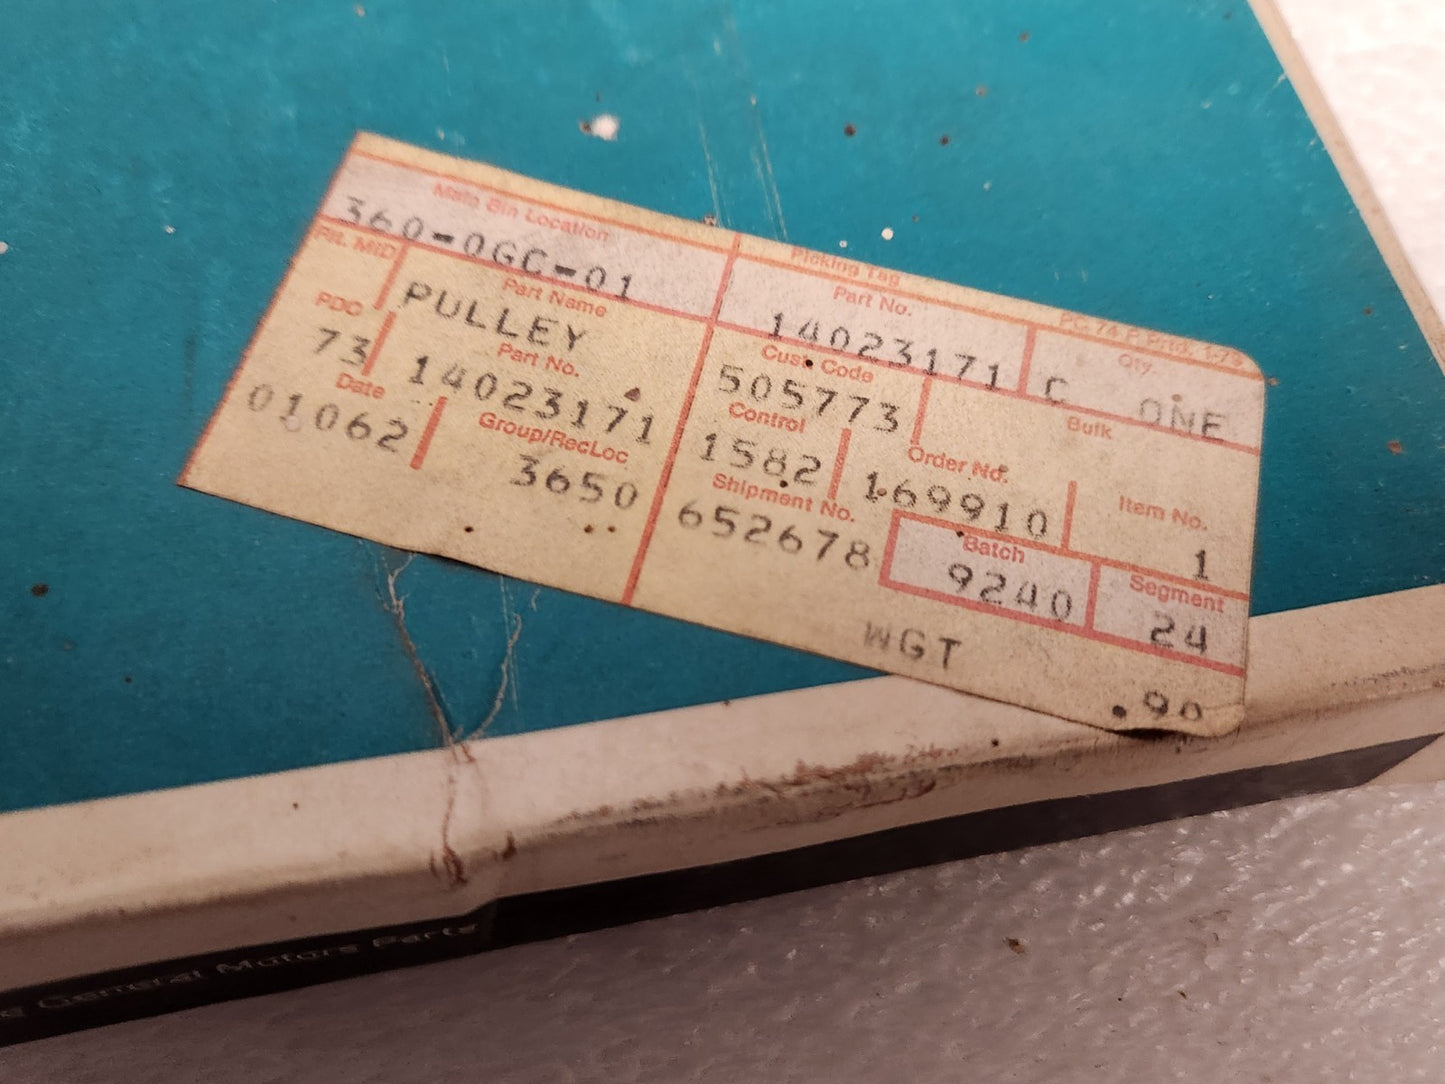 Main Bin Location
360-0GC-01
P/L MID
Part Name
PULLEY
PDC
73
Part No.
14023171
Date
01062
Group/RecLoc
3650
Picking Tag
PC 74 P Prtd. 1-79
Part No.
14023171
Qty.
C ONE
Cust Code
505773
Bulk
Control
1582
Order No.
169910
Item No.
1
Shipment No.
652678
Batch
9240
Segment
24
WGT
.90
General Motors Parts